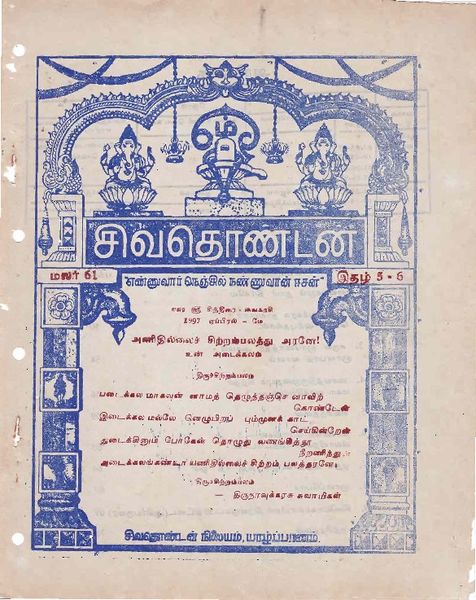 ஓம்
சிவதொண்டன்
மலர் 61
எண்ணுவார் நெஞ்சில் நண்ணுவான் ஈசன்
இதழ் 5 - 6
ஸ்ரீ சித்திரை - வைகாசி
1997 ஏப்பிரல் - மே
அணிதில்லைச் சிற்றம்பலத்து அரனே!
உன் அடைக்கலம்
திருச்சிற்றம்பலம்
படைக்கல மாகவுன் னாமத் தெழுத்தஞ்சென் னாவிற்
கொண்டேன்
இடைக்கல மல்லே னெழுபிறப் பும்முனக் காட்
செய்கின்றேன்
துடைக்கினும் போகேன் தொழுது வணங்கித்தூ
நீறணிந்துன்
அடைக்கலங்கண்டா யணிதில்லைச் சிற்றம் பலத்தரனே.
திருச்சிற்றம்பலம்
— திருநாவுக்கரசு சுவாமிகள்
சிவதொண்டன் நிலையம், யாழ்ப்பாணம்.